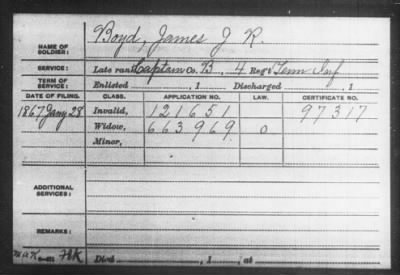 NAME OF SOLDIER: Boyd, James J. R.
SERVICE: Late rank Captain Co. B, 4 Reg't Tenn Inf
TERM OF SERVICE: Enlisted , 1 Discharged , 1
DATE OF FILING. CLASS. APPLICATION NO. LAW. CERTIFICATE NO.
1867 Jany 28 Invalid, 121651 97317
Widow, 663969 0
Minor,
ADDITIONAL SERVICES:
REMARKS:
Died , 1 , at